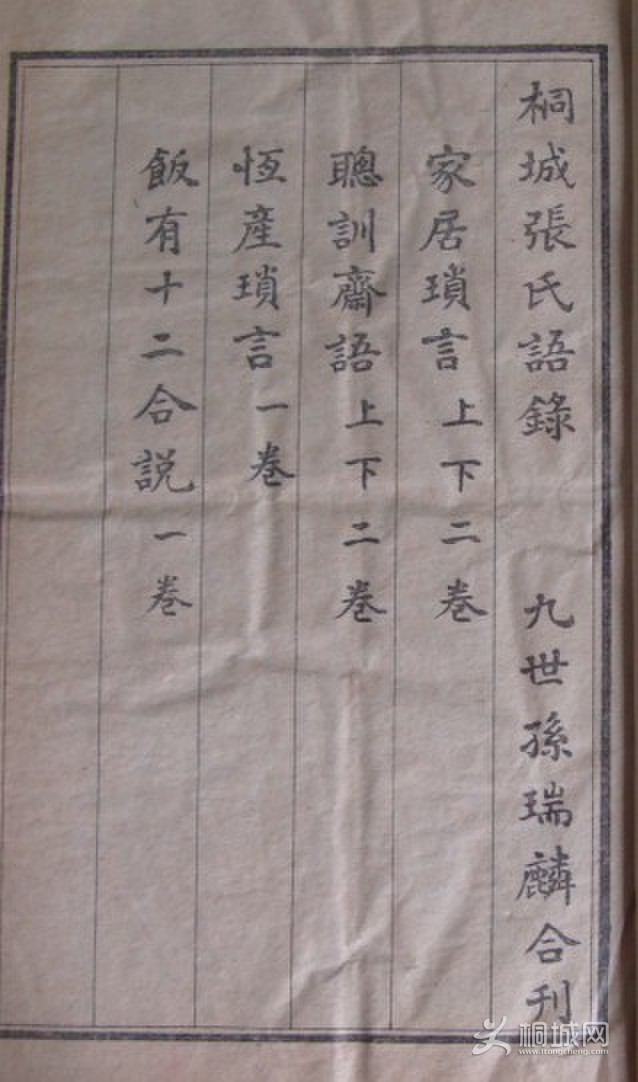 桐城張氏語錄 九世孫瑞麟合刊
家居瑣言上下二卷
聰訓齋語上下二卷
恆產瑣言一卷
飯有十二合説一卷
桐城网
www.itongcheng.com